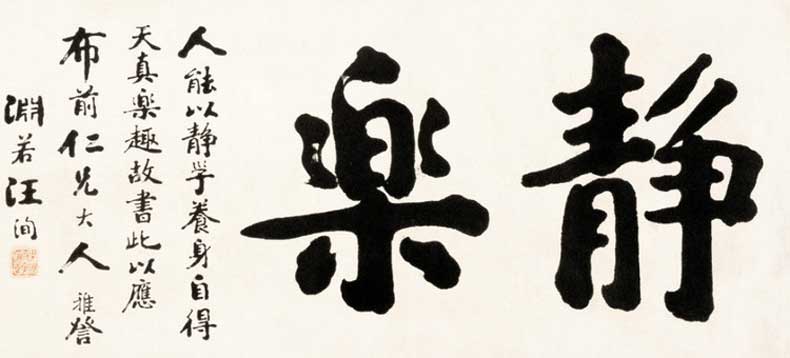 静楽
人能以静学養身自得
天真楽趣故書此以應
布前仁兄大人雅詧
淵若汪洵